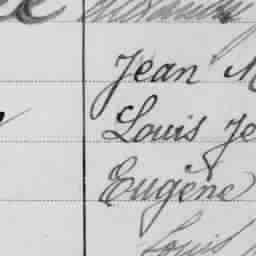 Jean M
Louis Je
Eugène
Louis